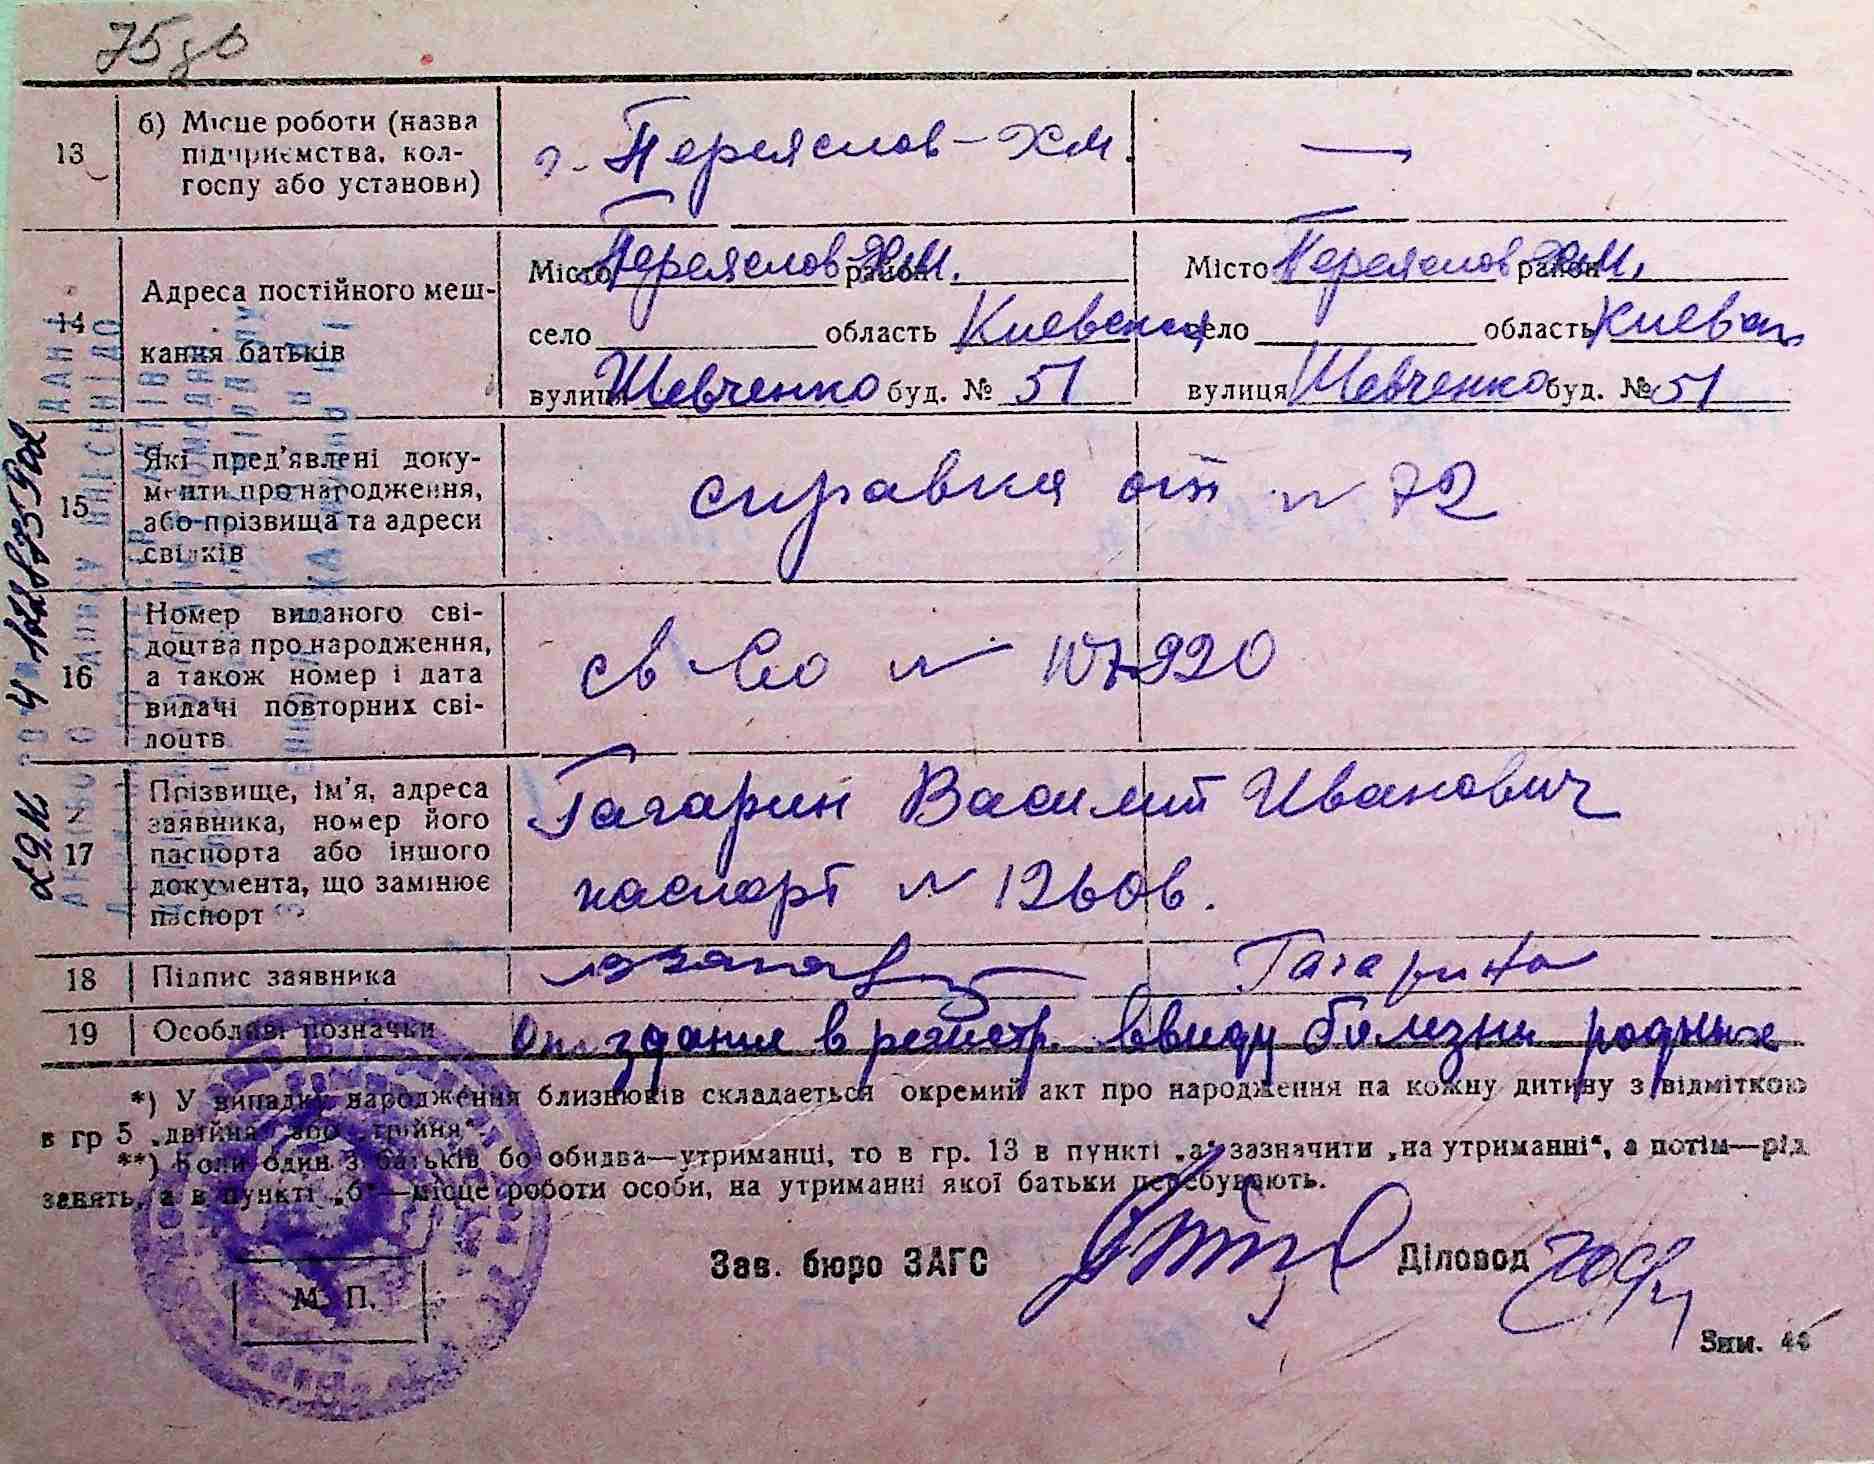 75
13 б) Місце роботи (назва
підприємства, кол-
госпу або установи)
г. Переяслов-Хм. —
14 Адреса постійного меш-
кання батьків
Місто Переяслов-Хм. район Місто Переяслов-Хм. район
село область Киевская село область Киевск
вулиця Шевченко буд. № 51 вулиця Шевченко буд. № 51
15 Які пред’явлені доку-
менти про народження,
або прізвища та адреси
свідків
справка №72
16 Номер виданого сві-
доцтва про народження,
а також номер і дата
видачі повторних сві-
доцтв
св-во № 107220
17 Прізвище, ім’я, адреса
заявника, номер його
паспорта або іншого
документа, що замінює
паспорт
Гагарин Василий Иванович
паспорт №
18 Підпис заявника Гагарина
19 Особливі позначки
Опоздания в регистр. ввиду болезни родных
*) У випадку народження близнюків складається окремий акт про народження на кожну дитину з відміткою
в гр 5 „двійня“ або „трійня“.
**) Коли один з батьків бо обидва—утриманці, то в гр. 13 в пункті „а“ зазначити „на утриманні“, а потім—рід
занять, а в пункті „б“—місце роботи особи, на утриманні якої батьки перебувають.
Зав. бюро ЗАГС Діловод
М. П.
Зам.